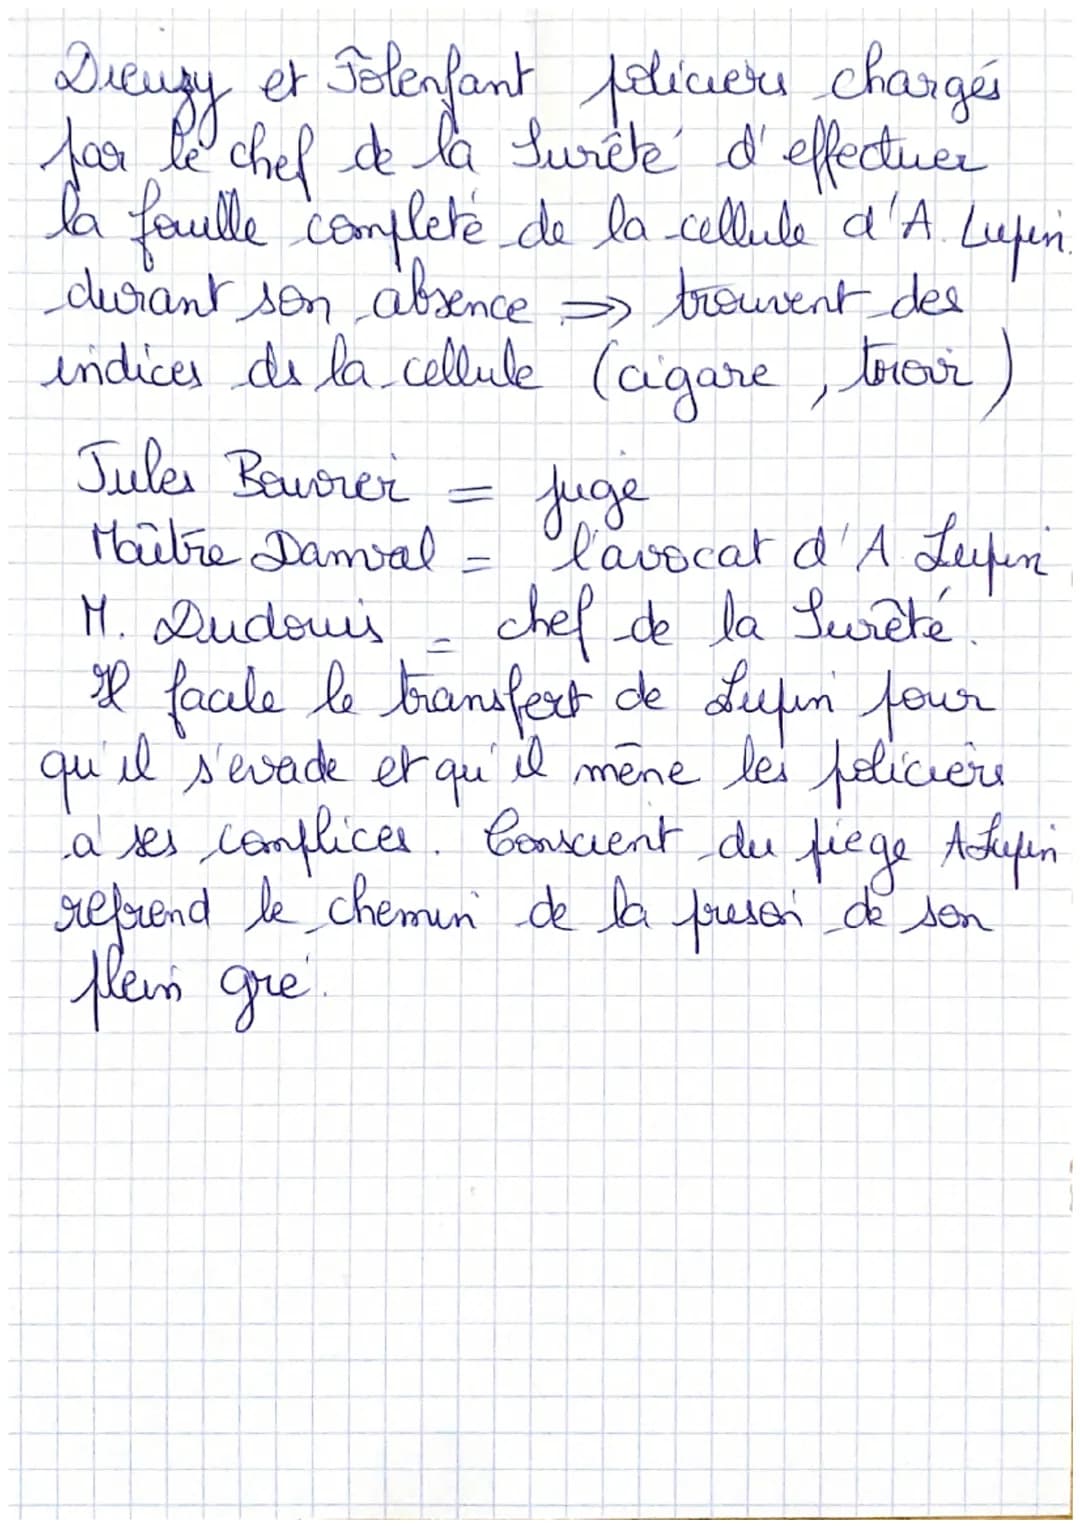 Dieuzy et Folenfant policiers chargés
par le chef de la Sureté d'effectuer
la fouille complète de la cellule d'A. Lupin
durant son absence => trouvent des
indices ds la cellule (cigare, tiroir)
Jules Bouvier = juge
Maître Danval = l'avocat d'A Lupin
M. Dudouis = chef de la Sûreté.
Il facile le transfert de Lupin pour
qu'il s'evade et qu'il mène les policiers
à ses complices. Conscient du piège A Lupin
reprend le chemin de la prison de son
plein gré.